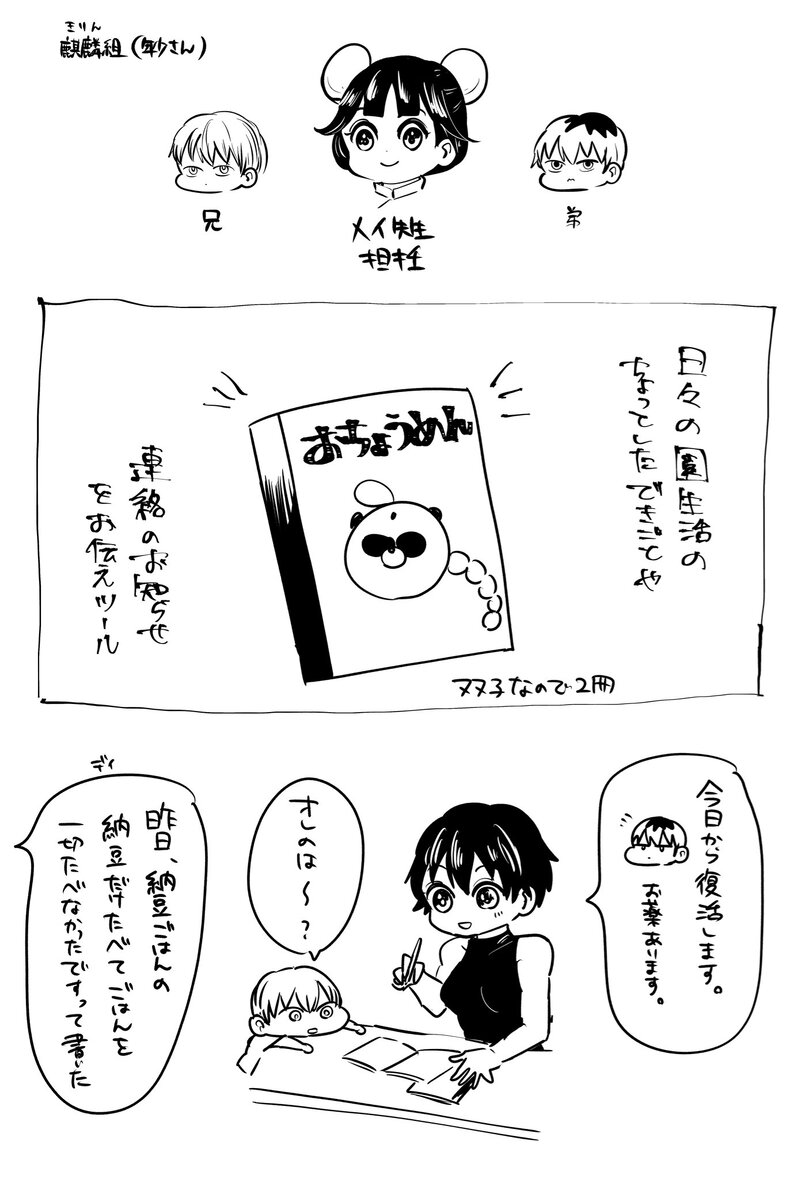 きりん
麒麟組（年少さん）
兄
メイ先生
担任
弟
日々の園生活の
ちょっとしたできごとや
おちょうめん
連絡のお知らせ
をお伝えツール
双子なので2冊
今日から復活します。
お薬あります。
オレのは〜？
昨日、納豆ごはんの
納豆だけたべてごはんを
一切たべなかったですって書いた